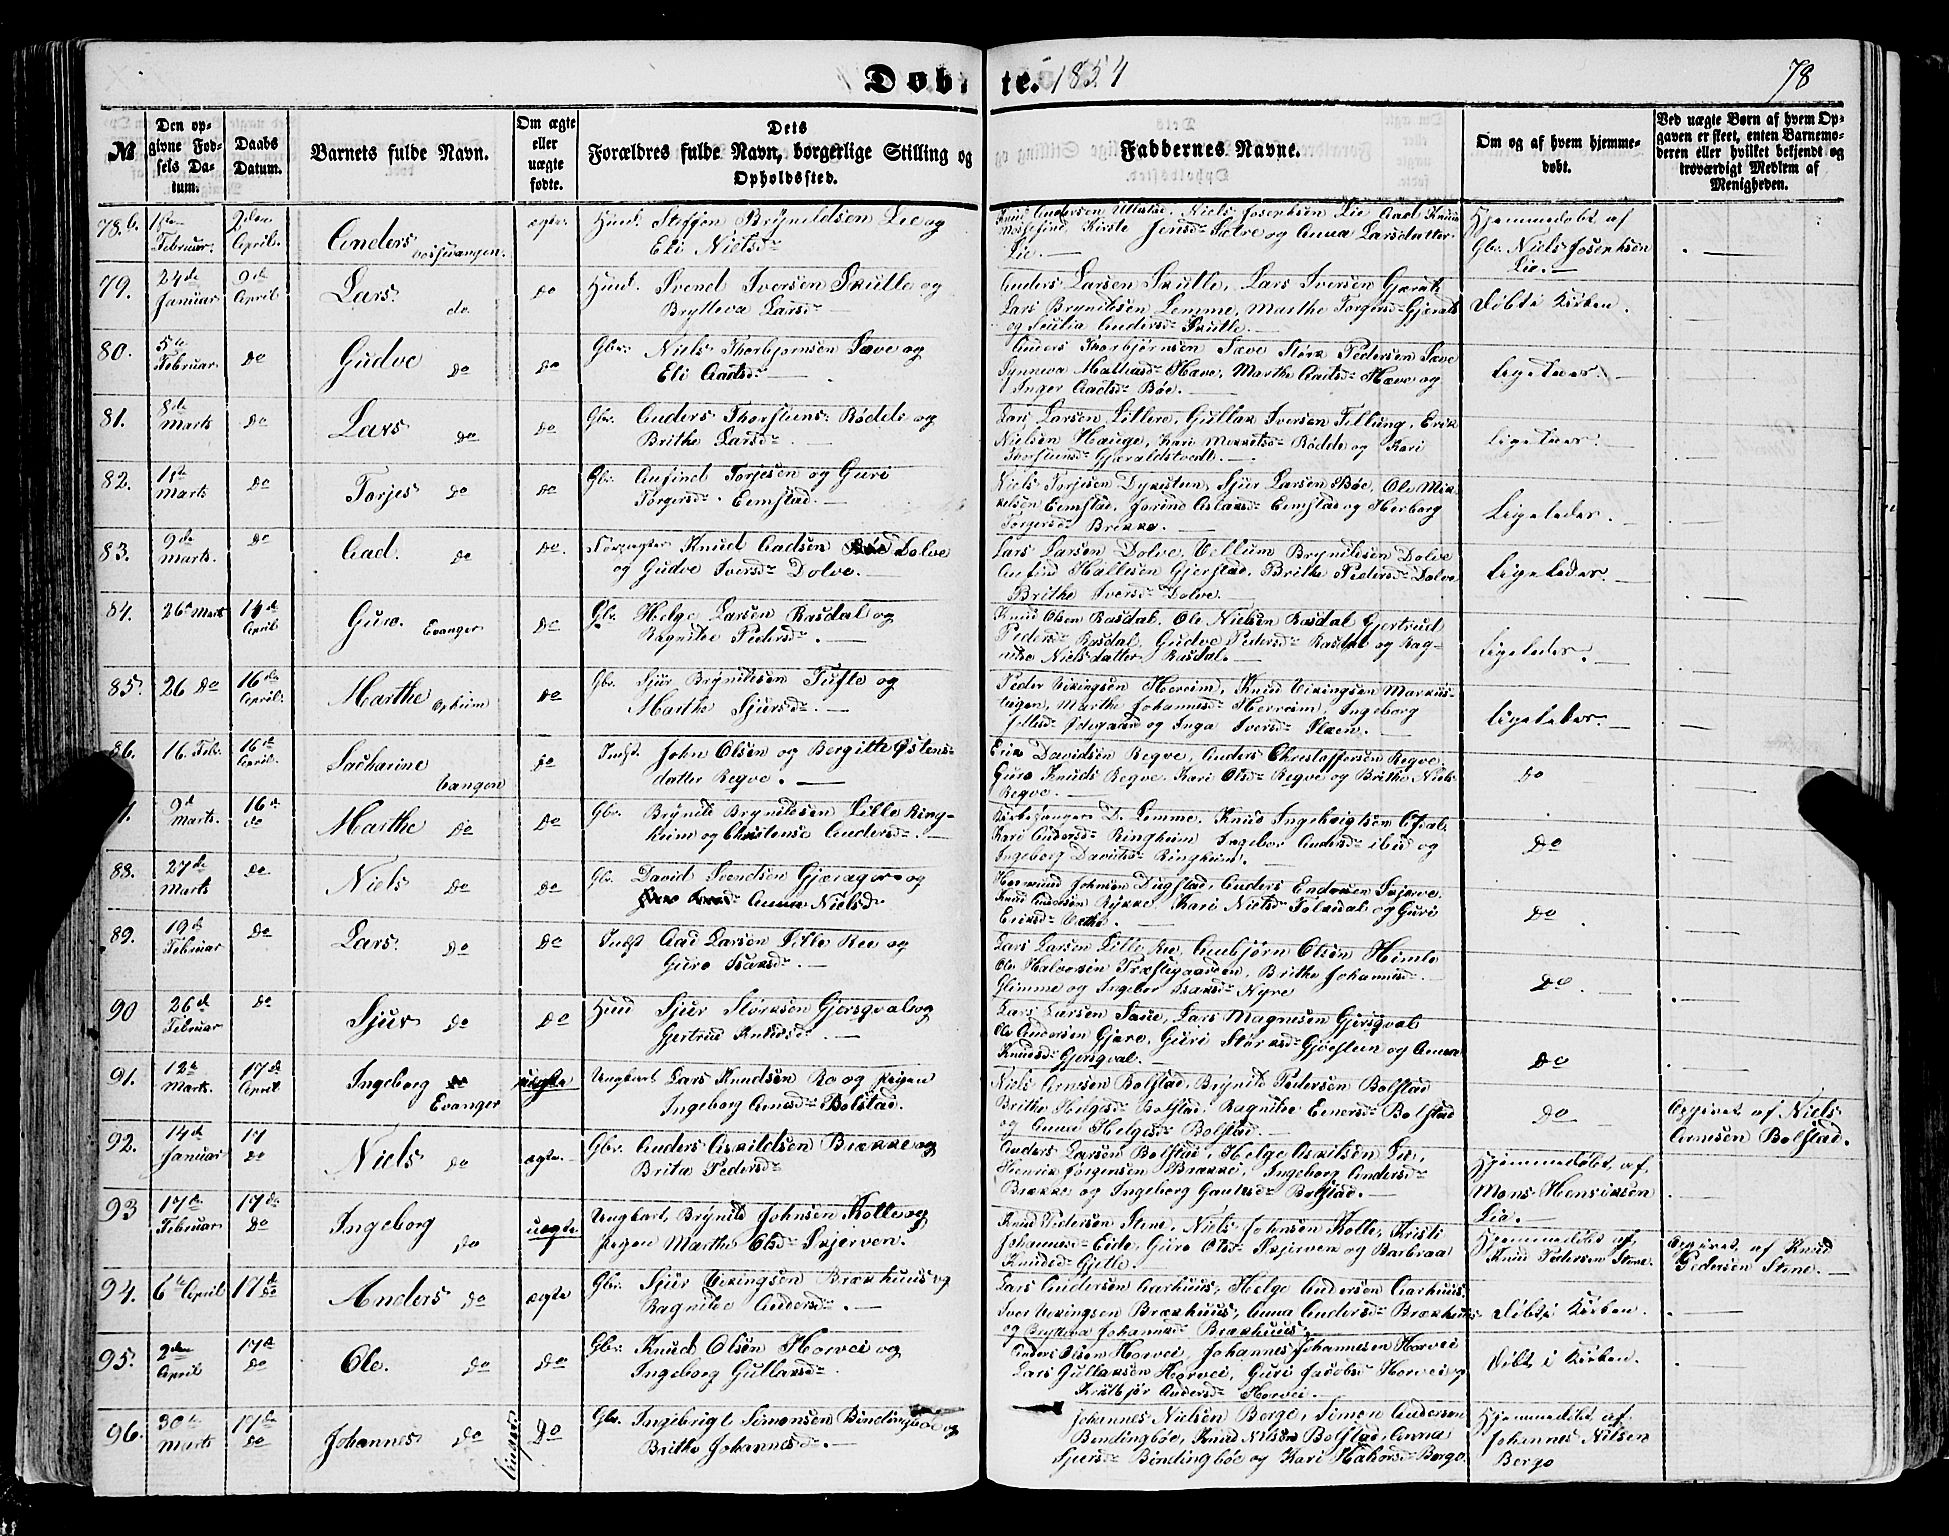 Døbte. 1854
78
№
Den opgivne Fødsels Datum.
Daabs Datum.
Barnets fulde Navn.
Om ægte eller uægte fødte.
Dets Forældres fulde Navn, borgerlige Stilling og Opholdssted.
Faddernes Navne.
Om og af hvem hjemmedøbt.
Ved uægte Børn af hvem Opgaven er skeet, enten Barnemoderen eller hvilket bekjendt og troværdigt Medlem af Menigheden.
78.b. Februar. 2den April. Anders Vossevangen. ægte. Huusm. Steffen Brynildsen Lie og
Eli Nielsd.
Knud Andersen Ullestad, Niels Josephsen Lie
Kirsti Jensd. Sætre og Anna Larsdatter
Lie.
Hjemmedøbt af
Gbr. Niels Josephsen
Lie.
79. 24de Januar 9de April Lars do do Huusm. Svend Iversen Skulle og
Brytteva Larsd.
Anders Larsen Skulle, Lars Iversen Gjerals
Lars Brynildsen Lemme, Marthe Torgersd. Gjerals
og Anders. Skulle.
Døbt i Kirken.
80. 5te Februar do Gudve do do Gbr. Niels Thorbjørnsen Sæve og
Eli Aadsd.
Anders Thorbjørnsen Sæve Størk Pedersen Sæve
Synneva Mathiasd. Hæve, Marthe Aadsd. Hæve og
Inger Aadsd. Bøe.
Ligeledes.
81. 8de Marts do Lars do do Gbr. Anders Thorsteins. Rødde og
Brithe Larsd.
Lars Larsen Lillere, Gullak Iversen Tillung, Erik
Nielsen Hauge, Kari Mikkelsd. Rødde og Kari
Thorsteinsd. Gjeraldstvedt.
Ligeledes.
82. 1ste Marts do Torjes do do Gbr. Anfind Torjesen og Guri
Torgersd. Eemstad.
Niels Torjesen Dykestun, Sjur Larsen Bøe, Ole Mik-
kelsen Eemstad, Jorund Aslaksd. Eemstad og Herborg
Torgersd. Brække.
Ligeledes.
83. 9de Marts. do Aad. do do. Knud Aadsen Dolve
og Gudve Iversd. Dolve.
Lars Larsen Dolve, Vellum Brynildsen Dolve
Anfind Hallesen Gjerstad, Brithe Pedersd. Dolve
Brithe Iversd. Dolve.
Ligeledes.
84. 26de Marts 14de April Guro. Evanger do Gbr. Helge Larsen Rasdal og
Ragnilde Pedersd.
Knud Olsen Rasdal, Ole Nielsen Rasdal Gjertrud
Pedersd. Rasdal, Gudve Pedersd. Rasdal og Rag-
nilde Nielsdatter Rasdal.
Ligeledes.
85. 26 do 16de April. Marthe Opheim do Gbr. Sjur Brynildsen Tufte og
Marthe Sjursd.
Peder Vikingsen Herreim, Knud Vikingsen Markus-
teigen, Marthe Johannesd. Herreim, Ingeborg
og Inga Iversd. Slæen.
Ligeledes.
86. 16. Feb. 16de April. Sacharine Vangen do Indst. John Olsen og Bergitte Østens-
datter Regve.
Erik Davidsen Regve, Anders Christoffersen Regve,
Guro Knuds. Regve, Kari Olsd. Regve og Brithe Niels.
Regve.
do
9de Marts. 16de do Marthe do do Gbr. Brynild Brynildsen Lille Ring-
heim og Christense Andersd.
Kirkesanger D. Lemme, Knud Ingebrigtsen Afdal,
Kari Andersd. Ringheim Ingebor Andersd. ibid og
Ingeborg Davidsd. Ringheim.
do
88. 27de Marts do. Niels do do Gbr. David Svendsen Gjerager og
Anna Nielsd.
Hermund Johnsen Dugstad, Anders Endresen Skjerve,
Knud Andersen Rykke, Kari Nielsd. Folkedal og Guri
Eriksd.
do
89. 19de Februar do Lars do do Indst Aad Larsen Lille Ree og
Guro Isaksd.
Lars Larsen Lille Ree, Aanbjørn Olsen Himle
Ole Halvorsen Præstegaarden, Brithe Johannesd.
Glimme og Ingebor Isaksd. Nyre
do
90 26de Februar do Sjur do do Huusm Sjur Størksen Gjersgval og
Gjertrud Knudsd.
Lars Larsen Saue, Lars Magnusen Gjersqval
Ole Andersen Gjøre, Guri Størksd. Gjøestein og Anna
Knudsd. Gjersqval.
do
91. 12te Marts. 17de April Ingeborg Evanger uægte Ungkarl Lars Knudsen Ro og pigen
Ingeborg Arnesd. Bolstad.
Niels Arnesen Bolstad, Brynild Pedersen Bolstad
Brithe Helgesd. Bolstad, Ragnilde Einersd. Bolstad
og Anna Helgesd. Bolstad.
do
Opgivet af Niels
Arnesen Bolstad.
92. 14de Januar 17 do Niels do ægte Gbr. Anders Askildsen Brække og
Brita Pedersd.
Anders Larsen Bolstad, Helge Askilsen Lie,
Henrik Jørgensen Brække, Ingeborg Andersd.
Brække og Ingeborg Gautesd. Bolstad.
Hjemmedøbt af
Mons Henriksen
Lie.
93 17de Februar 17de do Ingeborg do uægte Ungkarl Brynild Johnsen Kolle og
pigen Marthe Olsd. Skjerven.
Knud Pedersen Stene, Niels Johnsen Kolle, Kristi
Johannesd. Eide, Guro Olsd. Skjerven og Barbraa
Knudsd. Gjelle.
Hjemmedøbt af
Knud Pedersen Stene.
Opgivet af Knud
Pedersen Stene.
94. 6te April 17de do Anders do ægte Gbr. Sjur Vikingsen Brækhuus og
Ragnilde Andersd.
Lars Andersen Aarhuus, Helge Andersen Aarhuus,
Iver Vikingsen Brækhuus, Anna Andersd. Brækhuus
og Brytteva Johannesd. Brækhuus.
Døbt i Kirken.
95. 2den April 17de do Ole. do do Gbr. Knud Olsen Horvei og
Ingeborg Gullaksd.
Anders Olsen Horvei, Johannes Johannesen Horvei
Lars Gullaksen Horvei, Guri Jacobsd Horvei og
Andersd. Horvei.
Døbt i Kirken.
96. 30te Marts 17de do Johannes do do Gbr. Ingebrigt Simonsen Bindingbøe og
Brithe Johannesd.
Johannes Nielsen Berge, Simon Andersen
Bindingbøe, Knud Nilsen Bolstad, Anna
Sjursd. Bindingbøe og Kari Hakorsd. Berge.
Hjemmedøbt af
Johannes Nilsen
Berge